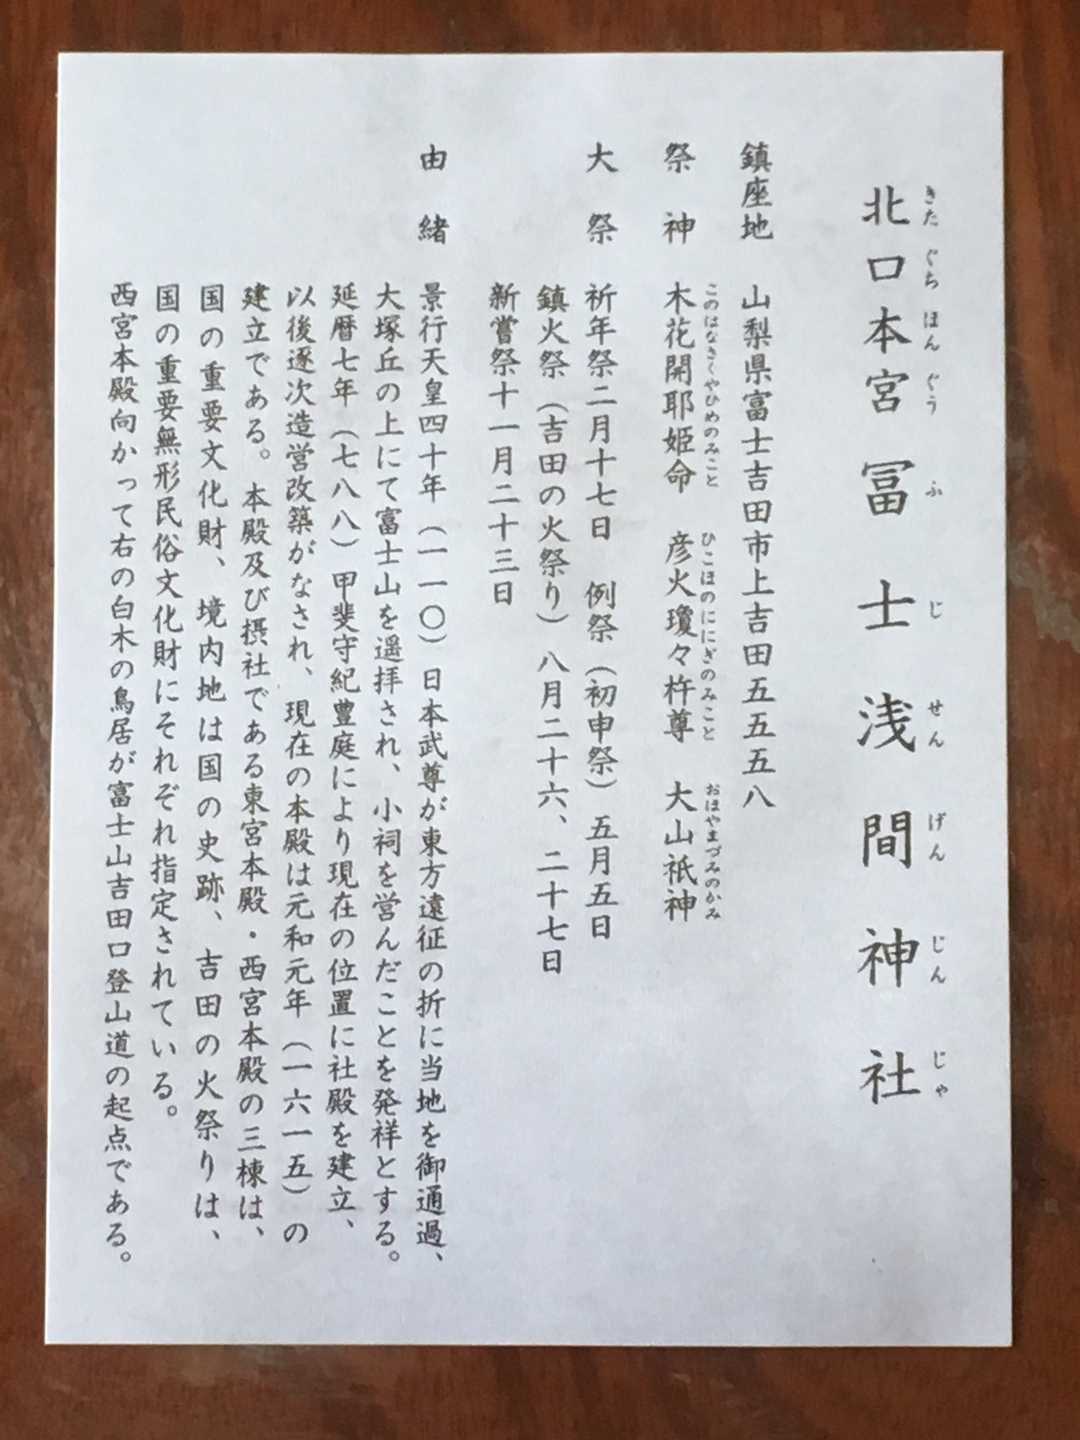 北口本宮冨士浅間神社
きたぐちほんぐうふじせんげんじんじゃ
鎮座地　山梨県富士吉田市上吉田五五五八
祭神　木花開耶姫命　彦火瓊々杵尊　大山祇神
このはなさくやひめのみこと　ひこほのににぎのみこと　おほやまづみのかみ
大祭　祈年祭二月十七日　例祭（初申祭）五月五日
鎮火祭（吉田の火祭り）八月二十六、二十七日
新嘗祭十一月二十三日
由緒　景行天皇四十年（一一〇）日本武尊が東方遠征の折に当地を御通過、
大塚丘の上にて富士山を遥拝され、小祠を営んだことを発祥とする。
延暦七年（七八八）甲斐守紀豊庭により現在の位置に社殿を建立、
以後逐次造営改築がなされ、現在の本殿は元和元年（一六一五）の
建立である。本殿及び摂社である東宮本殿・西宮本殿の三棟は、
国の重要文化財、境内地は国の史跡、吉田の火祭りは、
国の重要無形民俗文化財にそれぞれ指定されている。
西宮本殿向かって右の白木の鳥居が富士山吉田口登山道の起点である。